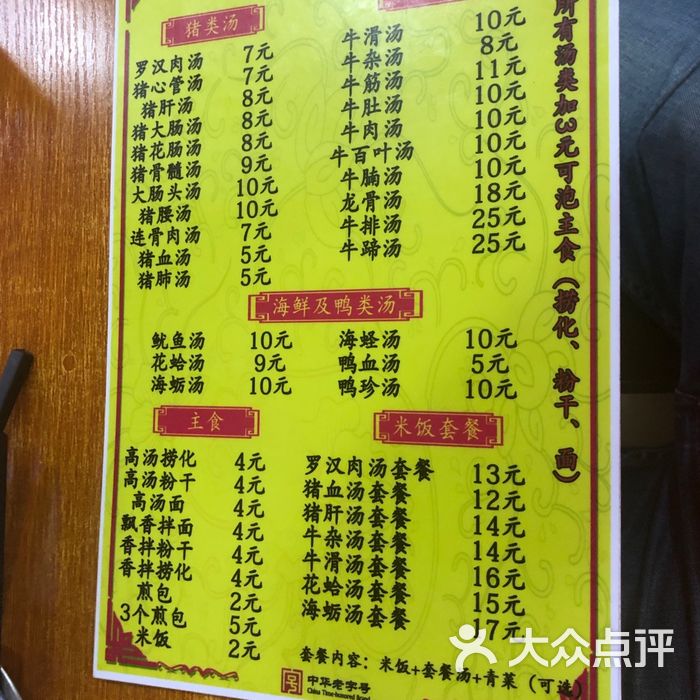 猪类汤
罗汉肉汤 7元
猪心管汤 7元
猪肝汤 8元
猪大肠汤 8元
猪花肠汤 8元
猪骨髓汤 9元
大肠头汤 10元
猪腰汤 10元
连骨肉汤 7元
猪血汤 5元
猪肺汤 5元
牛滑汤 10元
牛杂汤 8元
牛筋汤 11元
牛肚汤 10元
牛肉汤 10元
牛百叶汤 10元
牛腩汤 10元
龙骨汤 18元
牛排汤 25元
牛蹄汤 25元
海鲜及鸭类汤
鱿鱼汤 10元 海蛏汤 10元
花蛤汤 9元 鸭血汤 5元
海蛎汤 10元 鸭珍汤 10元
主食
高汤捞化 4元
高汤粉干 4元
高汤面 4元
飘香拌面 4元
香拌粉干 4元
香拌捞化 4元
煎包 2元
3个煎包 5元
米饭 2元
米饭套餐
罗汉肉汤套餐 13元
猪血汤套餐 12元
猪肝汤套餐 14元
牛杂汤套餐 14元
牛滑汤套餐 16元
花蛤汤套餐 15元
海蛎汤套餐 17元
套餐内容：米饭+套餐汤+青菜（可选）
中华老字号
China Time-honored Brand
所有汤类加3元可泡主食（捞化、粉干、面）
大众点评